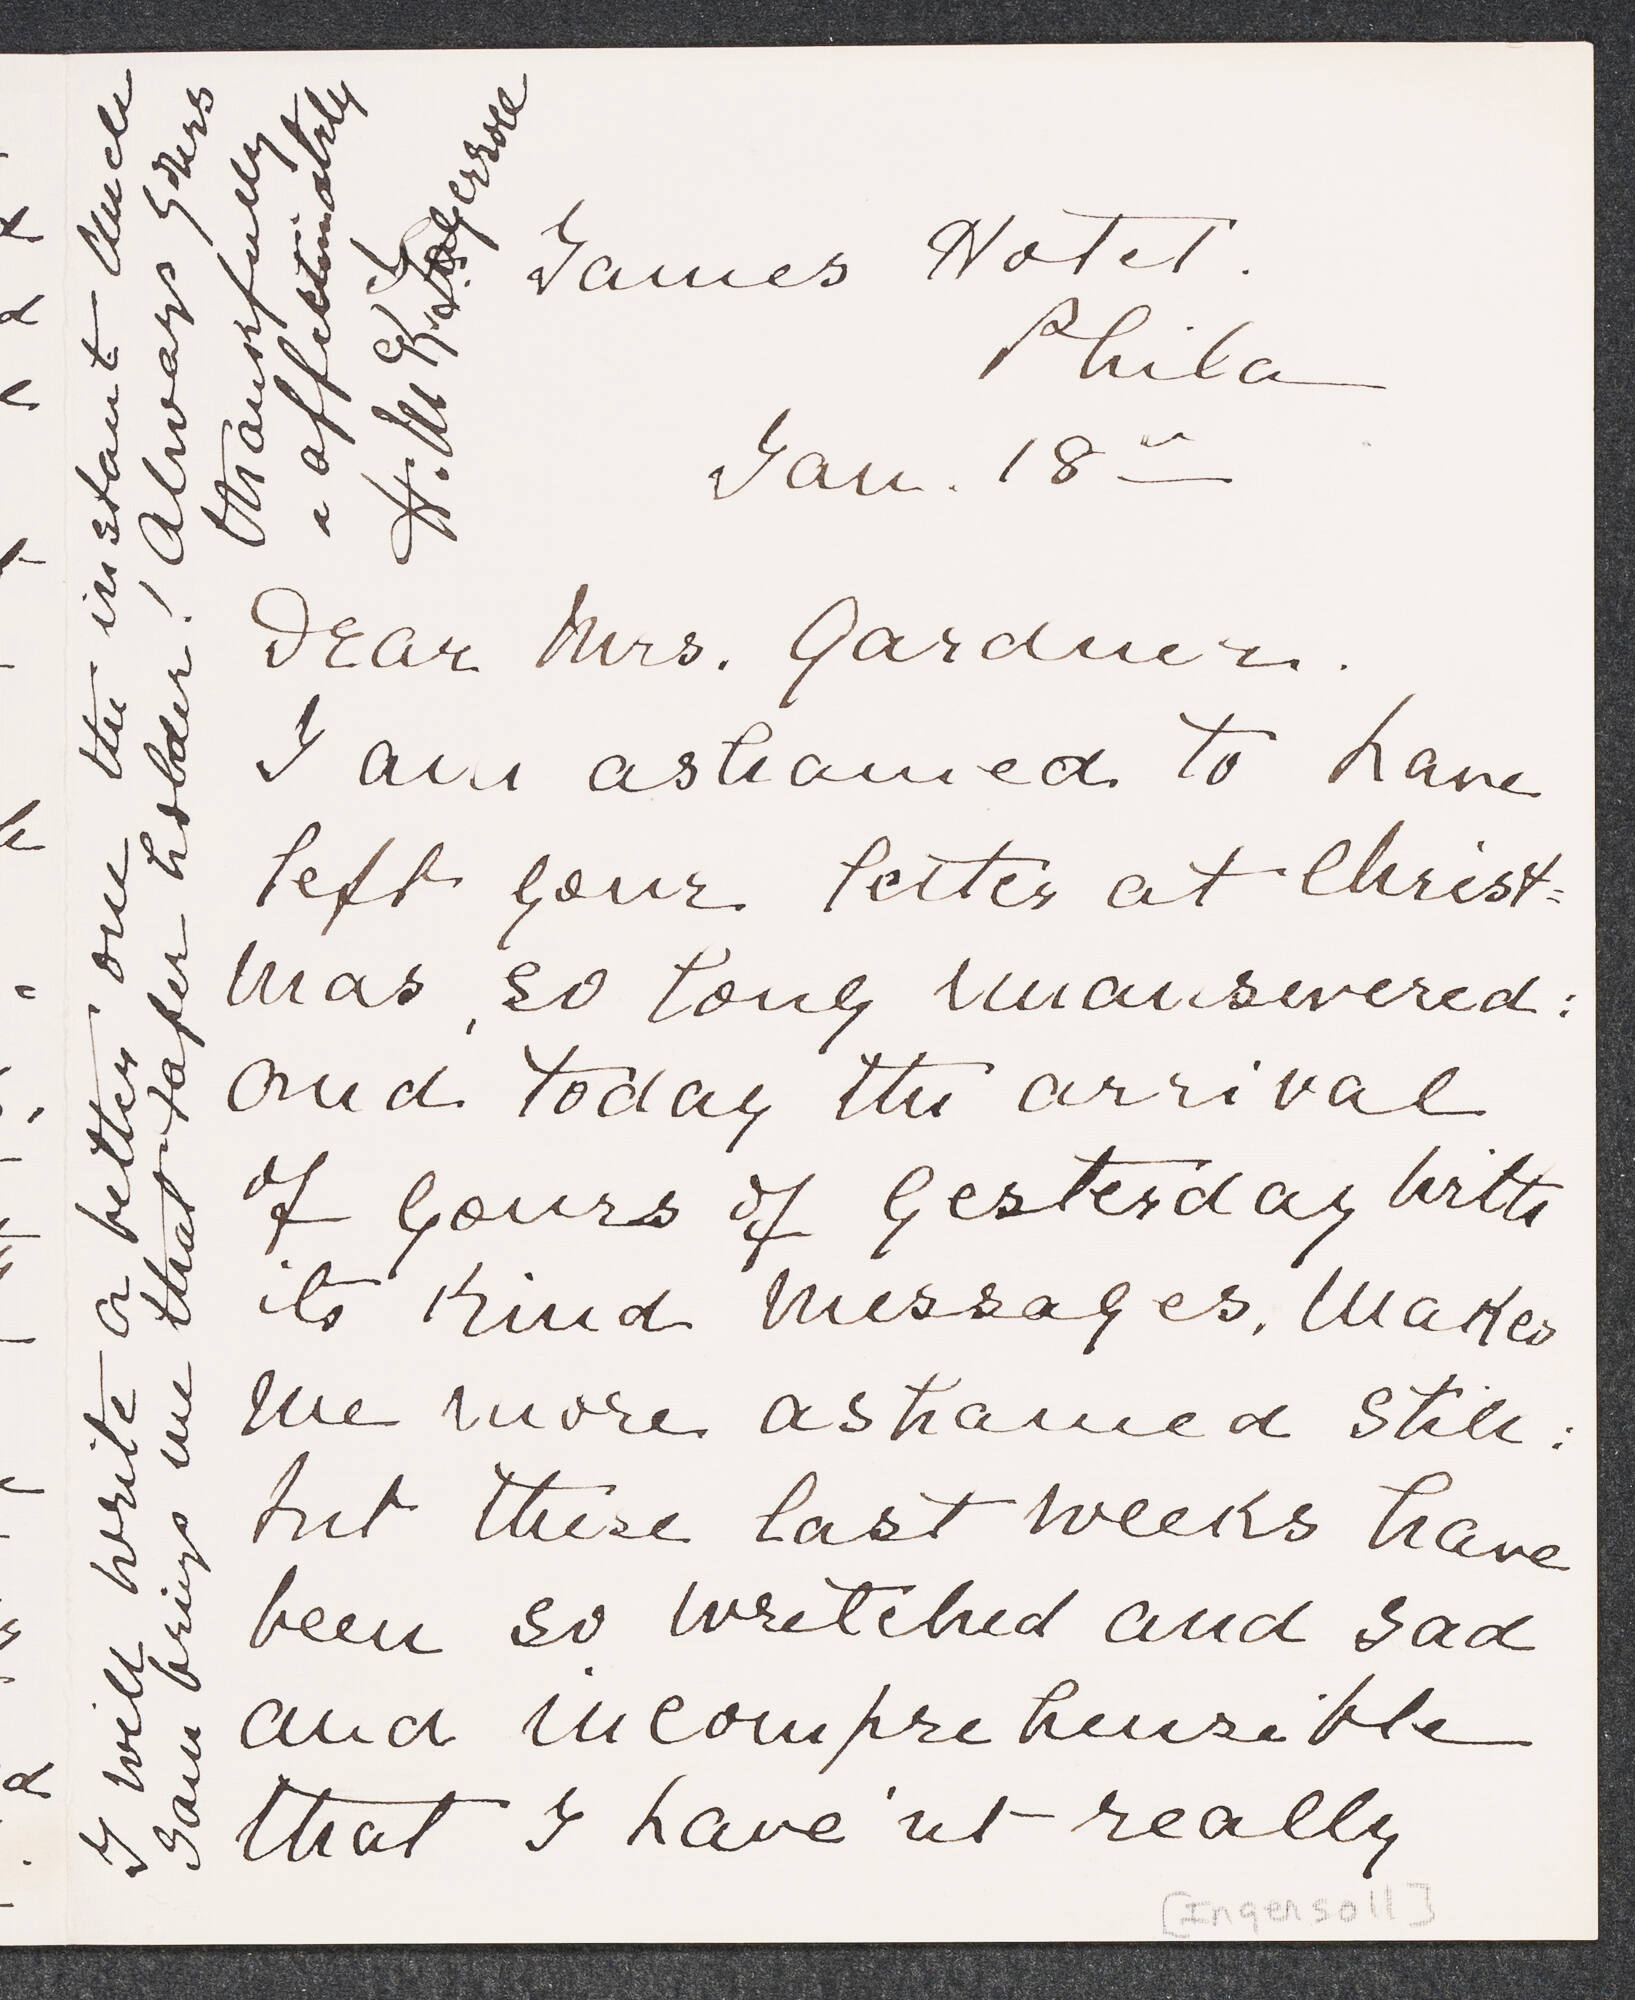 James Hotel.
Phila
Jan. 18th
Dear Mrs. Gardner.
I am ashamed to have
left your letter at Christ=
mas, so long unanswered:
and today the arrival
of yours of yesterday with
its kind messages, makes
me more ashamed still:
but these last weeks have
been so wretched and sad
and incomprehensible
that I have'nt really
[Ingersoll]
I will write a better one the instant Uncle
Sam brings me that taper holder! Always yours
thankfully
& affectionately
Ingersoll